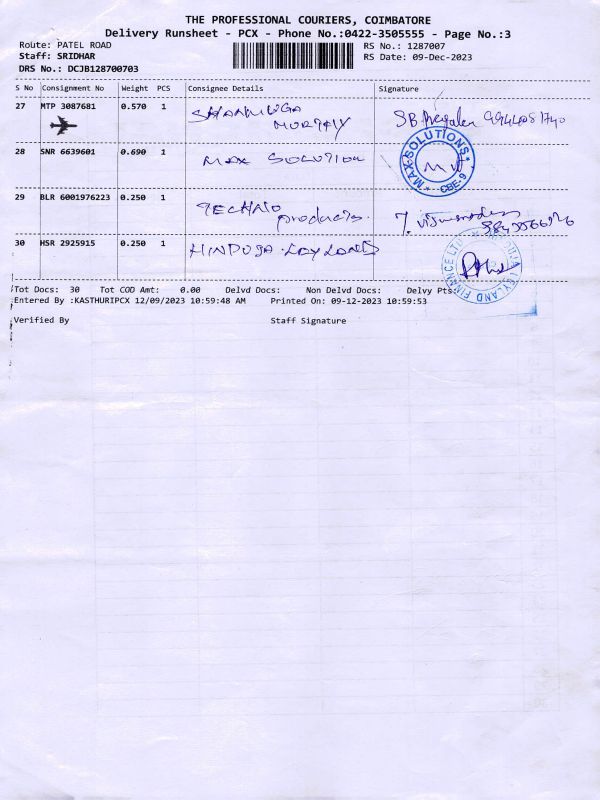 THE PROFESSIONAL COURIERS, COIMBATORE
Delivery Runsheet - PCX - Phone No.:0422-3505555 - Page No.:3
Route: PATEL ROAD RS No.: 1287007
Staff: SRIDHAR RS Date: 09-Dec-2023
DRS No.: DCJB128700703
S No Consignment No Weight PCS Consignee Details Signature
27 MTP 3087681 0.570 1 SHANMUGA
MURTHY
28 SNR 6639601 0.690 1 MAX SOLUTION
MAX-SOLUTIONS
CBE-9
29 BLR 6001976223 0.250 1 TECHNO
Products.
30 HSR 2925915 0.250 1 HINDUJA LEYLAND
HINDUJA LEYLAND FINANCE LTD
Tot Docs: 30 Tot COD Amt: 0.00 Delvd Docs: Non Delvd Docs: Delvy Pts:
Entered By :KASTHURIPCX 12/09/2023 10:59:48 AM Printed On: 09-12-2023 10:59:53
Verified By Staff Signature